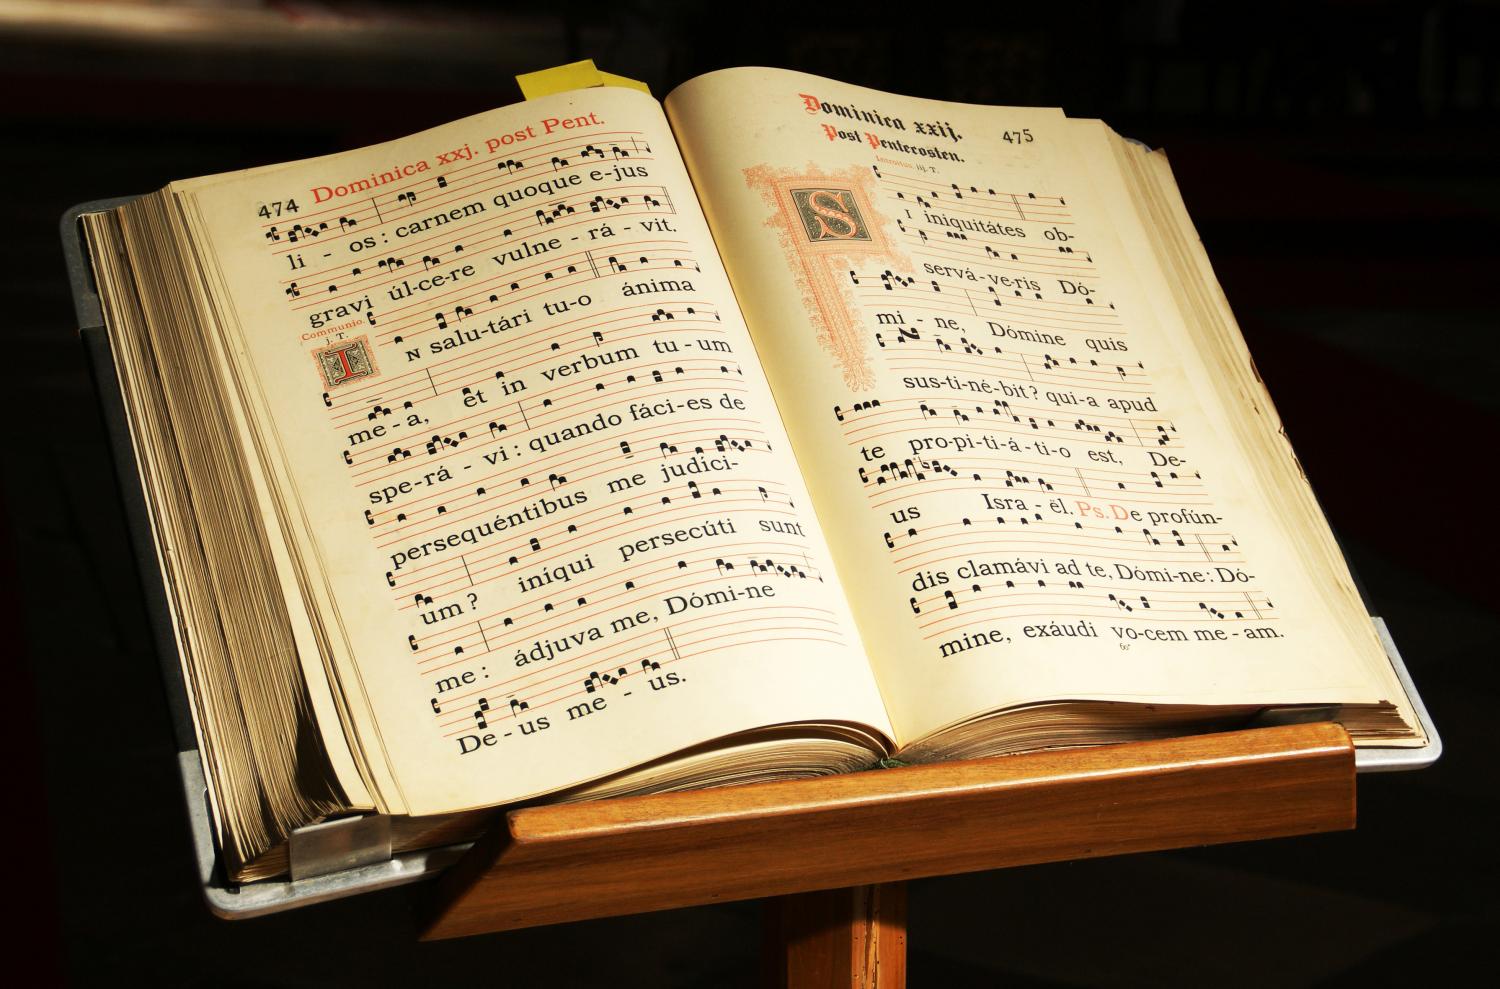 474 Dominica xxj. post Pent.
li - os : carnem quoque e-jus
gravi úl-ce-re vulne - rá - vit.
Communio.
j. T.
IN salu-tári tu-o ánima
me - a, et in verbum tu - um
spe-rá - vi : quando fáci-es de
persequéntibus me judíci-
um? iníqui persecúti sunt
me : ádjuva me, Dómi-ne
De - us me - us.
Dominica xxij. 475
Post Pentecosten.
Introitus. iij. T.
SI iniquitátes ob-
servá-ve-ris Dó-
mi - ne, Dómine quis
sus-ti-né-bit? qui-a apud
te pro-pi-ti-á-ti-o est, De-
us Isra - ël. Ps. De profún-
dis clamávi ad te, Dómi-ne : Dó-
mine, exáudi vo-cem me - am.